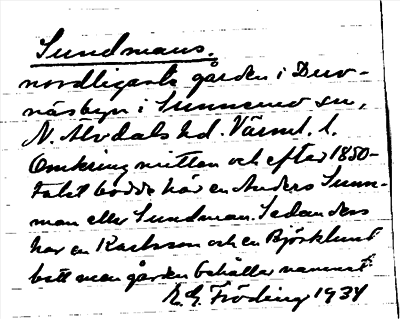 Sundmans.
nordligaste gården i Duv-
näsbyn i Sunnemo sn,
N. Älvdals hd. Värml. l.
Omkring mitten och efter 1850-
talet bodde här en Anders Sunn-
man eller Sundman. Sedan dess
har en Karlsson och en Björklund
bott men gården behåller namnet.
E. G. Fröding 1934